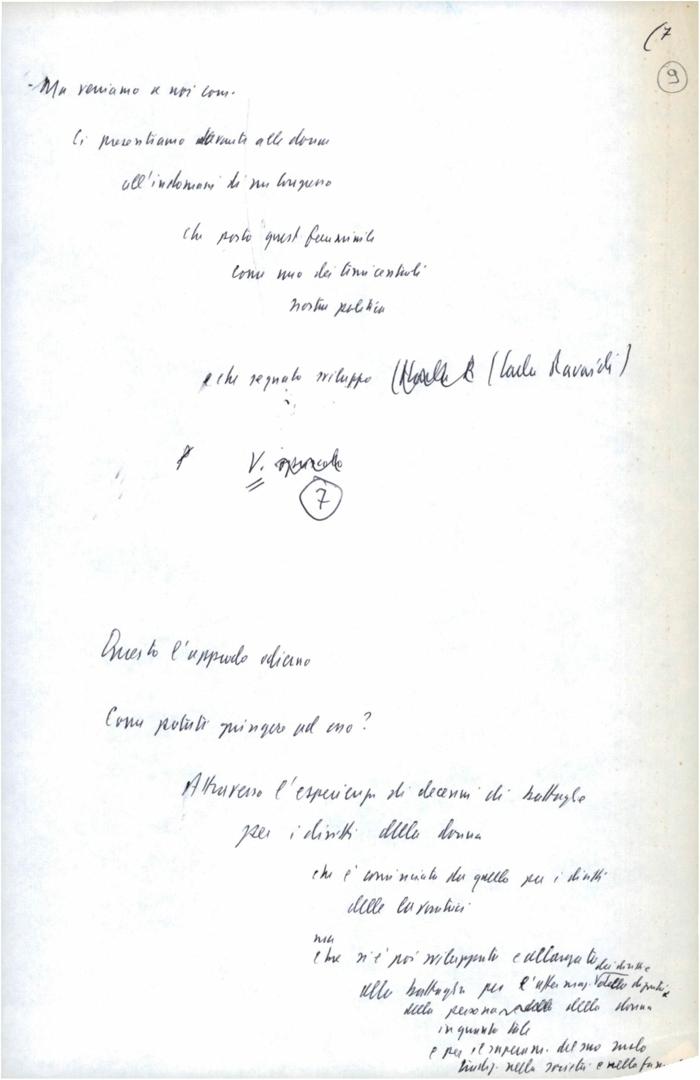 (7
9
- Ma veniamo a noi com.
Ci presentiamo davanti alle donne
all'indomani di un Congresso
che posto quest. femminile
come uno dei temi centrali
nostra politica
e che segnato sviluppo (Carla Ravaioli)
V. opuscolo
7
Questo l'approdo odierno
Come potuti giungere ad esso?
Attraverso l'esperienza di decenni di battaglie
per i diritti della donna
che è cominciata da quella per i diritti
delle lavoratrici
ma
che si è poi sviluppata e allargata
dei diritti e
alla battaglia per l'affermaz. della dignità
della persona della donna
in quanto tale
e per il superam. del suo ruolo
nella società e nella fam.